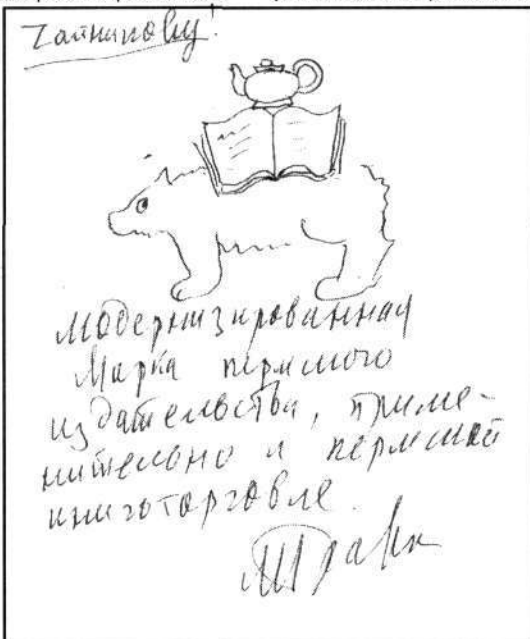 Чайникову!
Модернизированная
Марка пермского
издательства, приме-
нительно к пермской
книготорговле.